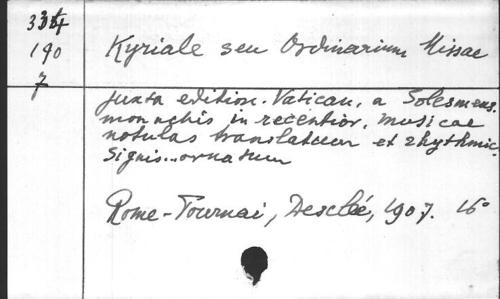 334
190
7
Kyriale seu Ordinarium Missae
juxta edition. Vatican. a Solesmens.
monachis in recentior. musicae
notulas translatum et rhythmic.
signis...ornatum
Rome-Tournai, Desclée, 1907. 16°